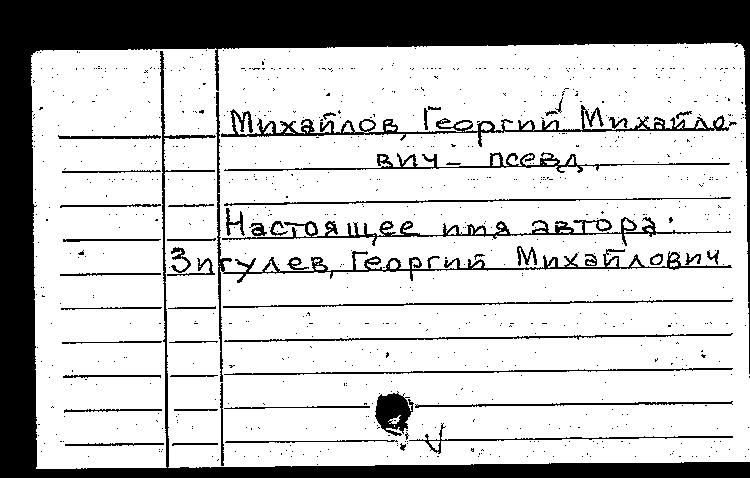 Михайлов, Георгий Михайло-
вич - псевд.
Настоящее имя автора:
Зигулев, Георгий Михайлович